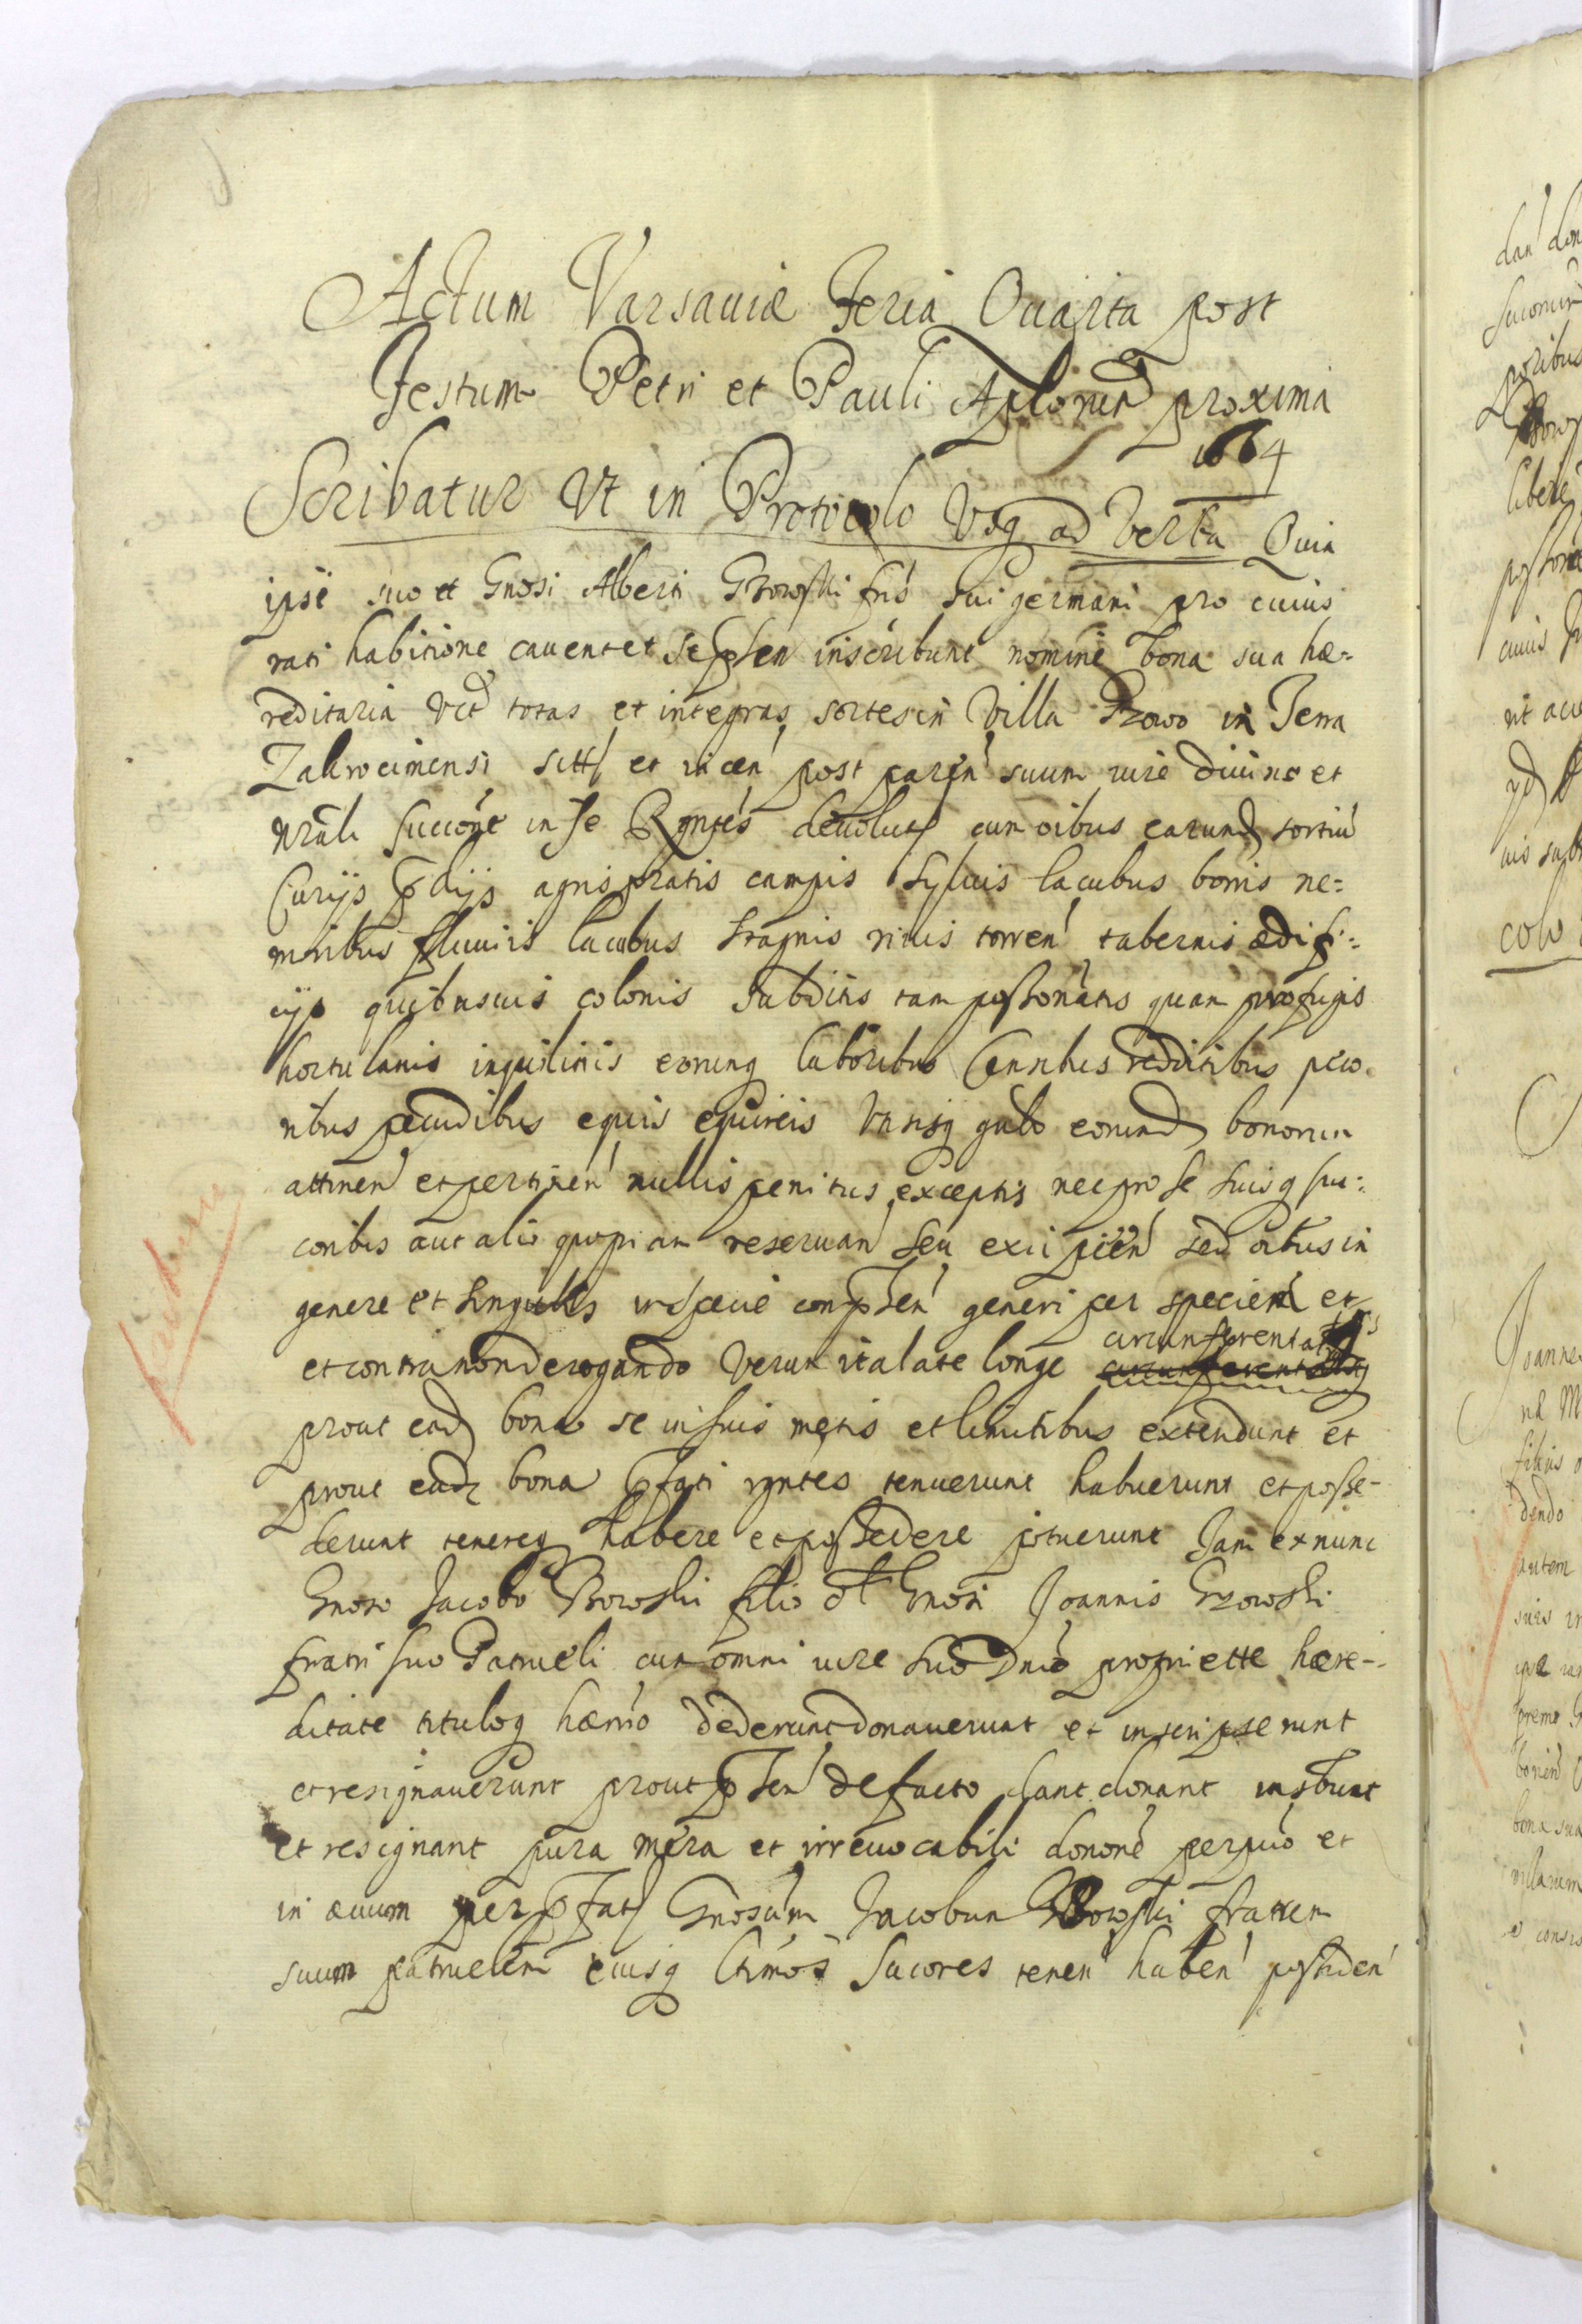 Actum Varsauiæ Feria Quarta post
Festum Petri et Pauli Aplorum proxima
1664
Scribatur Vt in Protocolo Vsq ad Verba Quia
ipsi suo et Gnosi Alberti Gzowski fris sui germani pro cuius
rati habitione cauent et se psen inscribunt nomine bona sua hæ=
reditaria vid totas et integras sortes in Villa Gzowo in Terra
Zakrocimensi sitt et iacen post paren suum iure diuino et
nrali succone in se Rgntes deuolut cum oibus earund sortiu
Curijs pdijs agris pratis campis syluis lacubus borris ne=
moribus fluuiis lacubus stagnis riuis torren tabernis ædifi=
cijs quibusuis colonis subditis tam possonatis quam profugis
hortulanis inquilinis eorumq laboribus Censibus redditibus peco
ribus pecudibus equis equireis Vnisq gnlr eorund bonorum
attinen et pertinen nullis penitus exceptis nec pro se suisq suc=
coribus aut alio quopiam reseruan seu excipien sed oibus in
genere et singulis in specie compsen generi per speciem et
et contra non derogando Verum ita late longe circumferentialr
prout ead bona se in suis metis et limitibus extendunt et
prout eadz bona pfati rgntes tenuerunt habuerunt et posse-
derunt tenereq habere et possedere potuerunt Jam ex nunc
Gnoso Jacobo Gzowski filio ol Gnosi Joannis Gzowski
fratri suo Patrueli cum omni iure suo Dnio propriette hære-
ditate tituloq hærrio dederunt donauerunt et inscripserunt
et resignauerunt prout psen de facto dant donant inscbunt
et resignant pura mera et irreuocabili donone perpuo et
in æuum per pfat Gnosum Jacobum Gzowski fratrem
suum patruelem eiusq Ltimos Sucores tenen haben possiden